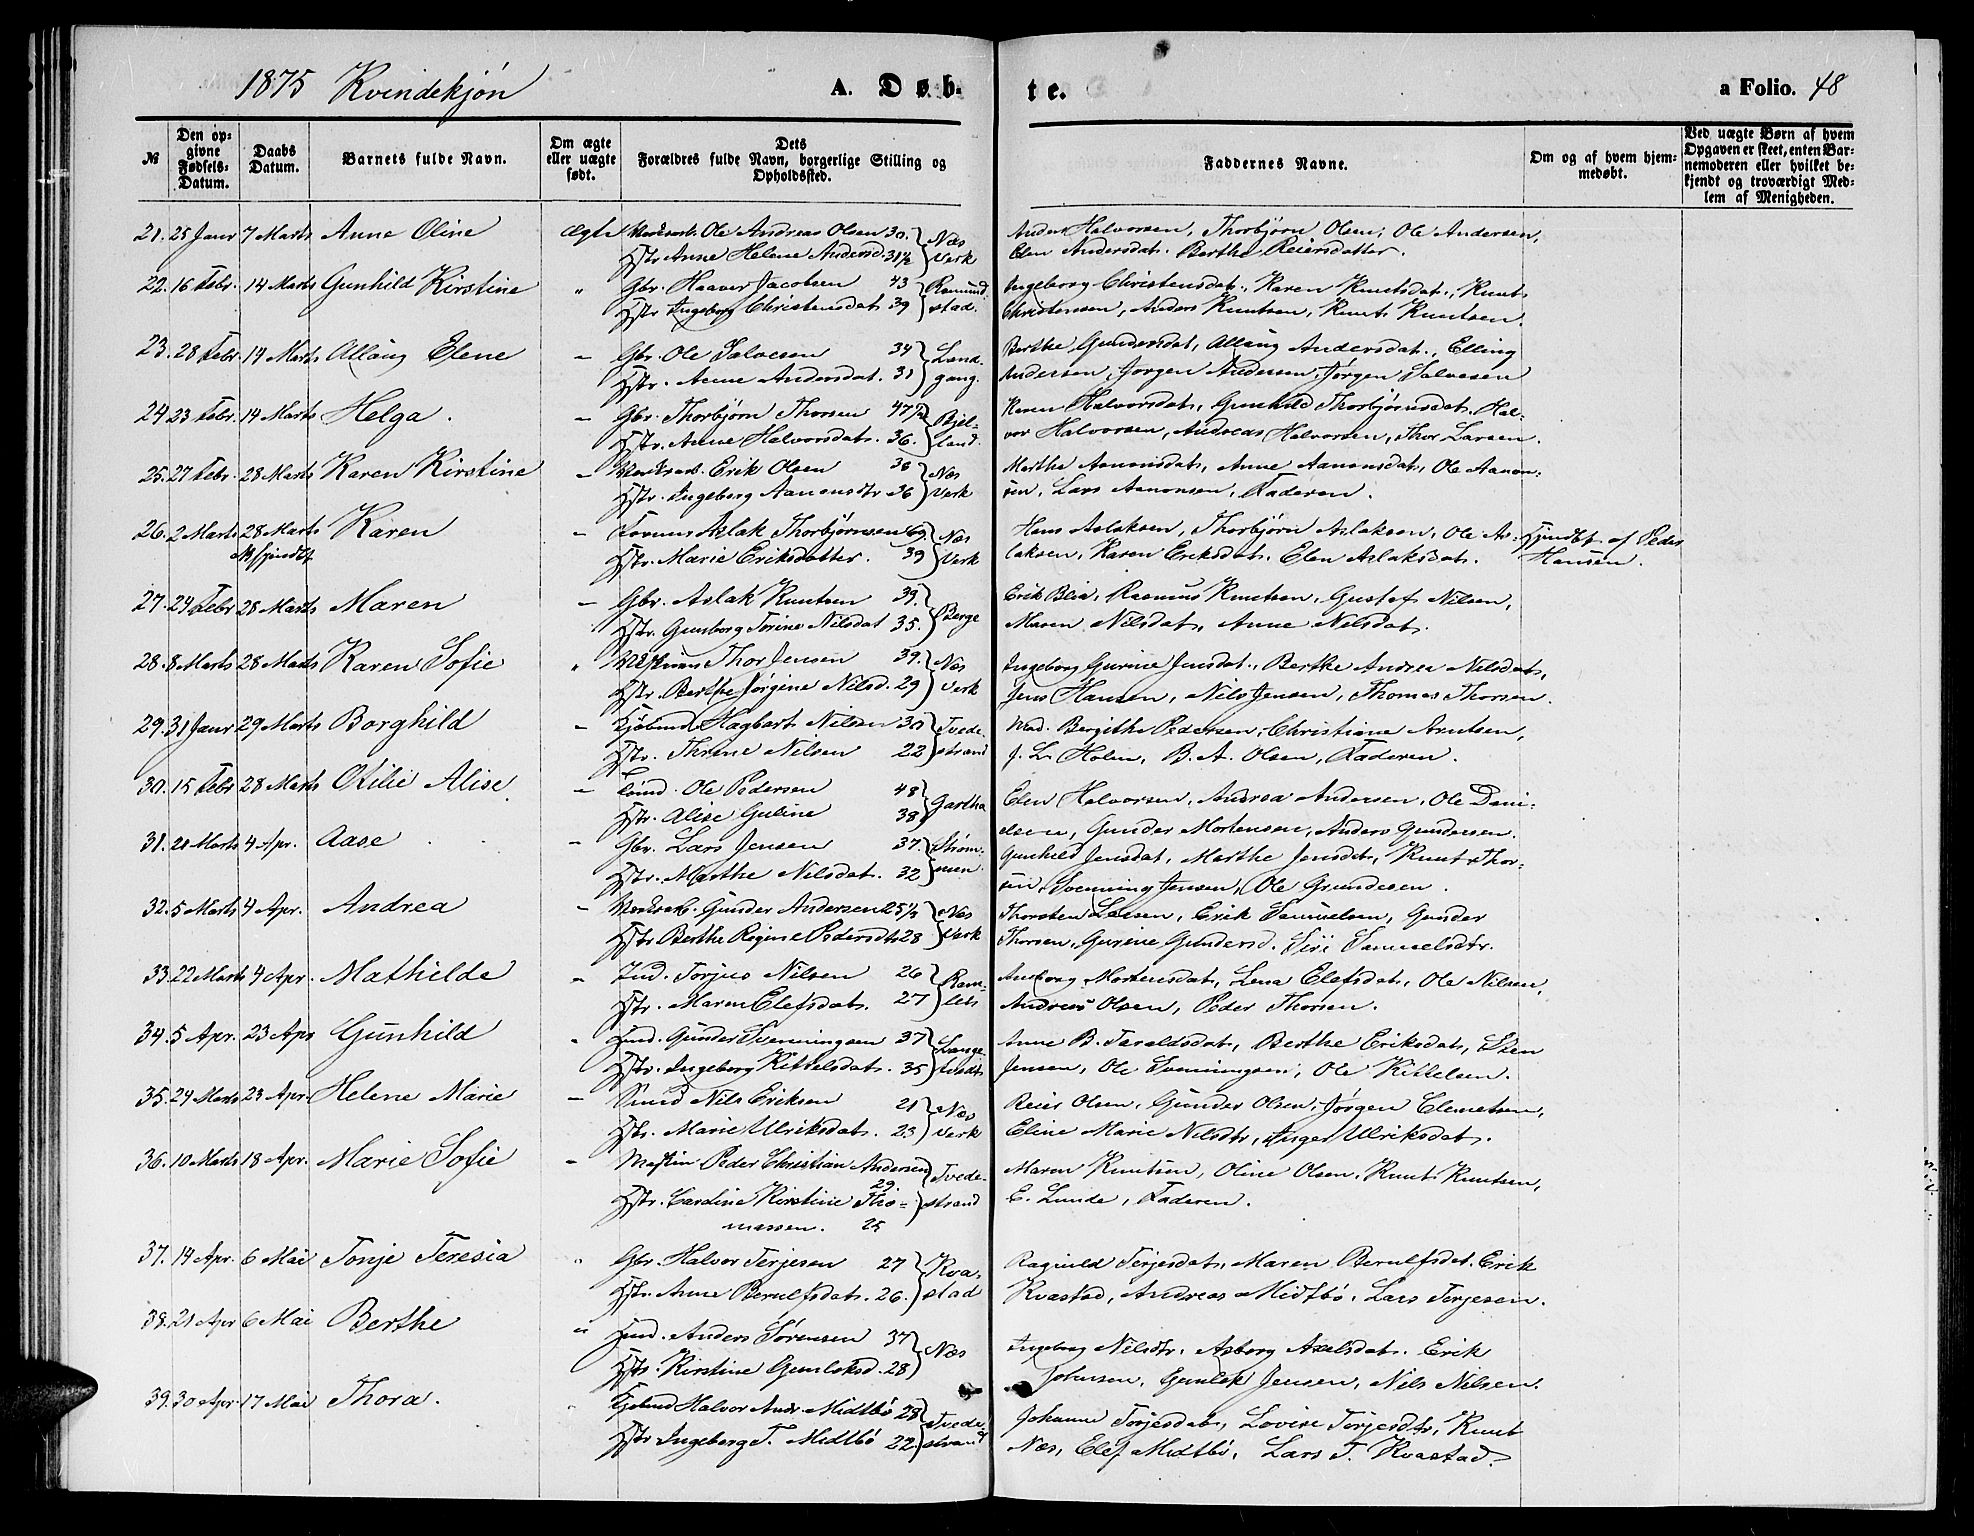 1875 Kvindekjøn A. Døb- te. a Folio. 48
№ Den op-givne Fødsels-Datum. Daabs Datum. Barnets fulde Navn. Om ægte eller uægte født. Dets Forældres fulde Navn, borgerlige Stilling og Opholdssted. Faddernes Navne. Om og af hvem hjem-medøbt. Ved uægte Børn af hvem Opgaven er skeet, enten Bar-nemoderen eller hvilket be-kjendt og troværdigt Med-lem af Menigheden.
21. 25 Janr 7 Marts Anne Oline ægte Ole Andreas Olsen 30. Næs Halvorsen, Thorbjørn Olsen, Ole Andersen,
Hstr Anne Helene Andersd. 31½ Verk Elen Andersdat. Berthe Reiersdatter.
22. 16 Febr. 14 Marts Gunhild Kirstine " Gbr. Haaver Jacobsen 43 Ramund Ingeborg Christensdat., Karen Knutsdat., Knut
Hstr Ingeborg Christensdat 39 stad. Christensen, Anders Knutsen, Knut Knutsen.
23. 28 Febr. 14 Marts Allaug Elene - Gbr. Ole Salvesen 34 Land- Berthe Gundersdat, Allaug Andersdat., Elling
Hstr. Anne Andersdat. 31 gang. Andersen, Jørgen Andersen, Jørgen Salvesen
24 23 Febr. 14 Marts Helga. - Gbr. Thorbjørn Thorsen 47½ Bjel- Karen Halvorsdat, Gunhild Thorbjørnsdat. Hal-
Hstr. Anne Halvorsdat. 36. land. vor Halvorsen, Andreas Halvorsen, Thor Larsen.
25. 27 Febr. 28 Marts Karen Kirstine - Erik Olsen 36 Næs Marthe Aanonsdat, Anne Aanonsdat, Ole Aanon-
Hstr. Ingeborg Aanonsdtr 36 Verk sen, Lars Aanonsen, Faderen.
26. 2 Marts 28 Marts Karen - Aslak Thorbjørnsen 69 Næs Hans Aslaksen, Thorbjørn Aslaksen, Ole As- Hjmdbt. af Peder
Hstr. Marie Eriksdatter. 39 Verk laksen, Karen Eriksdat. Elen Aslaksdat. Hansen.
27. 24 Febr 28 Marts Maren - Gbr. Aslak Knutsen 39. Berge Erik Rasmus Knutsen, Gustof Nilsen,
Hstr. Gunborg Torine Nilsdat 35. Maren Nilsdat, Anne Nilsdat.
28. 8 Marts 28 Marts Karen Sofie " Thor Jensen 39. Næs Ingeborg Gurine Jensdat., Berthe Andrea Nilsdat,
Hstr. Berthe Jørgine Nilsd. 29 Verk Jens Hansen, Nils Jensen, Thomas Thorsen.
29. 31 Janr 29 Marts Borghild - Kjøbmd Hagbart Nilsen 30 Tvede- Mad. Bergithe Pedersen, Christiane Arntsen,
Hstr. Thrine Nilsen 22 strand J. L. Holm, B. A. Olsen, Faderen.
30. 15 Febr 28 Marts Otilie Alise - Ole Pedersen 48 Gartha Elen Halvorsen, Andrea Andersen, Ole Dani-
Hstr. Alise Guline 38 elsen, Gunder Mortensen, Anders Gundersen.
31. 21 Marts 4 Apr. Aase - Gbr. Lars Jensen 37. Strøm- Gunhild Jensdat, Marthe Jensdat, Knut Thor-
Hstr. Marthe Nilsdat. 32 men. sen, Svenning Jensen, Ole Gundesen.
32. 5 Marts 4 Apr. Andrea - Gunder Andersen 25½ Næs Thorsten Larsen, Erik Samuelsen, Gunder
Hstr Berthe Regine Pedersdtr 28 Verk Thorsen, Gurine Gundersd. Siri Samuelsdtr.
33. 22 Marts 4 Apr. Mathilde - Ind. Torjus Nilsen 26 Ram- Mortensdat, Lena Elefsdat, Ole Nilsen,
Hstr. Maren Elefsdat. 27 lets Andreas Olsen, Peder Thorsen.
34. 5 Apr. 23 Apr Gunhild " Ind. Gunder Svenningsen 37 Lange- Anne B. Taraldsdat, Berthe Eriksdat, Sten
Hstr. Ingeborg Kittelsdat. 35 Jensen, Ole Svenningsen, Ole Kittelsen.
35. 24 Marts 23 Apr. Helene Marie - Smed Nils Eriksen 21 Næs Reier Olsen, Gunder Olsen, Jørgen Clemetsen,
Hstr. Marie Ulriksdat. 23 Verk Eline Marie Nilsdtr, Inger Ulriksdat.
36. 10 Marts 18 Apr. Marie Sofie - Peder Christian Andersen Tvede- Maren Knutsen, Oline Olsen, Knut Knutsen,
29
Hstr. Cardine Kirstine Tho- strand E. Lunde, Faderen.
massen. 25
37. 14 Apr. 6 Mai Tonje Teresia " Gbr. Halvor Terjesen 27 Kva- Ragnild Terjesdat, Maren Berulfsdat. Erik
Hstr. Anne Berulfsdat. 26. stad Kvastad, Andreas Midtbø, Lars Terjesen.
38. 21 Apr 6 Mai Berthe " Ind. Anders Sørensen 37 Næs Ingeborg Nilsdtr. Asborg Axelsdat. Erik
Hstr. Kirstine Gunleksd. 28 Johnsen, Gunlek Jensen, Nils Nilsen.
39. 30 Apr. 17 Mai Thora. " Kjøbmd Halvor Andr. Midtbø 28 Tvede- Johanne Terjesdat, Lovise Terjesdtr, Knut
Hstr Ingeborg T. Midtbø 22 strand Næs, Elef Midtbø, Lars T. Kvastad.